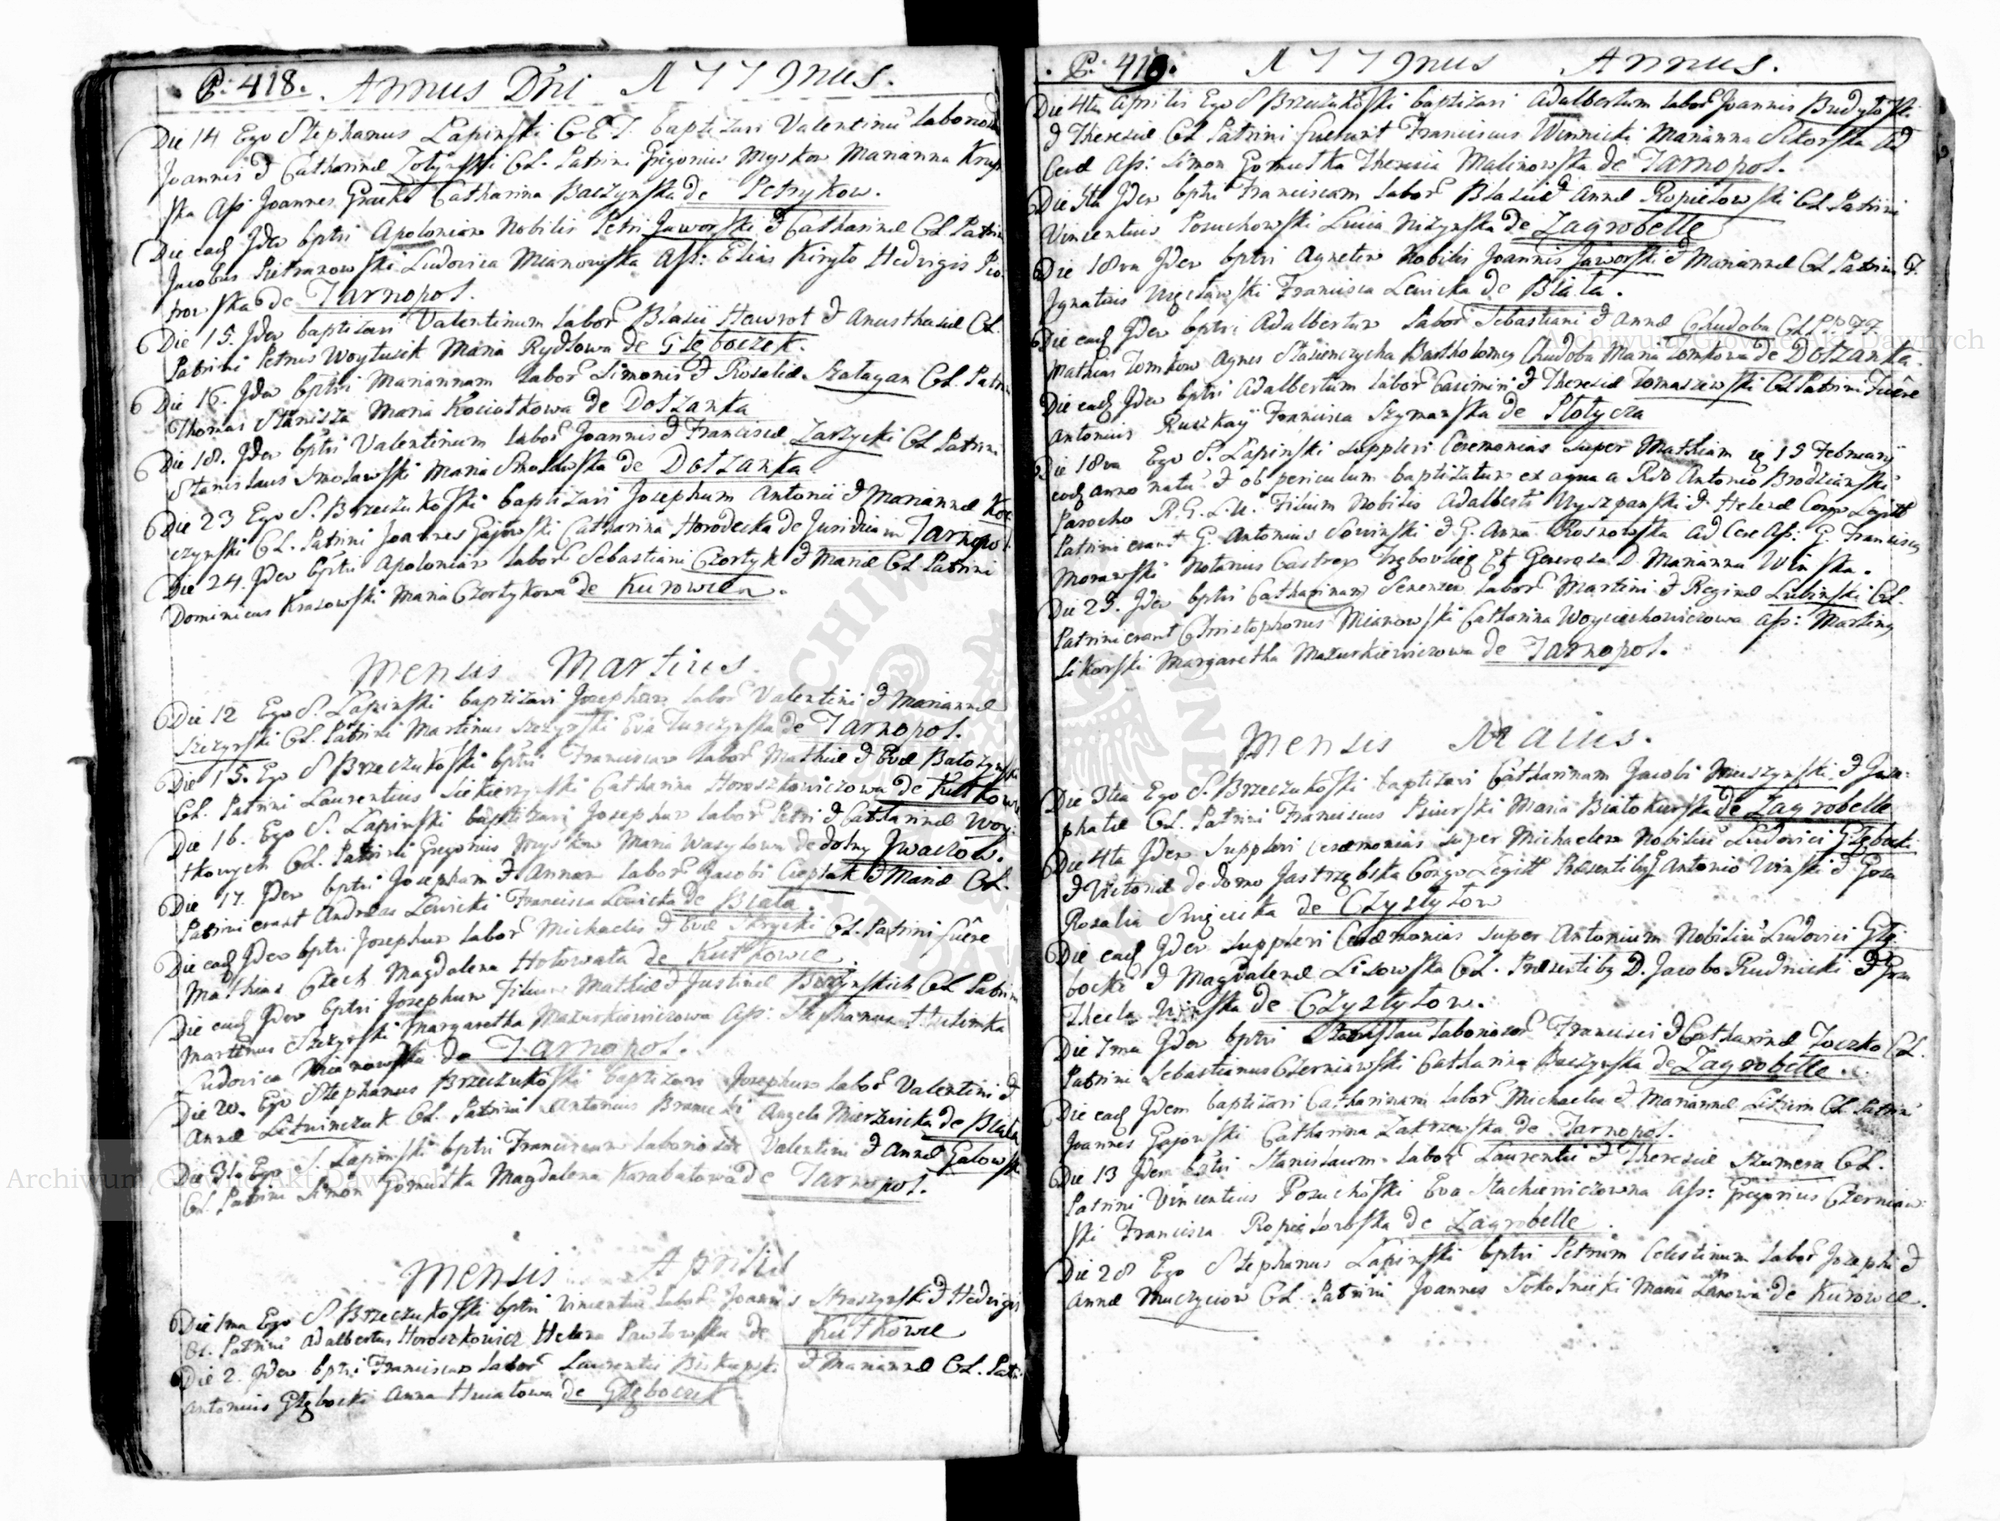 P: 418. Annus Dni 1779nus.
Die 14 Ego Stephanus Łapinski C.E.T. baptizavi Valentinū Laborios
Joannis & Catharinæ CL. Patrini Gregorius Myskow Marianna Krup
ska Ass: Joannes Catharina Baczynska de Petrykow.
Die eadē Idem bptvi Apoloniam Nobilis Petri Jaworski & Catharinæ CL Patrin
Jacobus Pietranowski Ludovica Mianowska Ass: Elias Kiryło Hedvigis Pio
trowska de Tarnopol.
Die 15. Idem baptizavi Valentinum Labor Blasii Hawrot & Anasthasiæ CL.
Patrini Petrus Woytusik Maria Rydlowa de Głęboczek.
Die 16. Idem bptvi Mariannam Labor Simonis & Rosaliæ Szatagan CL. Patri
Thomas Stanisza Maria Kociołkowa de Dołżanka
Die 18. Idem bptvi Valentinum Labor Joannis & Franciscæ Zarzycki CL Patrini
Stanislaus Smolawski Maria Smolawska de Dołżanka
Die 23 Ego S. Brzeczukoski baptizavi Josephum Antonii & Mariannæ Koc
czynski CL. Patrini Joannes Gajowski Catharina Horodecka de Juridica in Tarnopol
Die 24. Idem bptvi Apoloniam Labor Sebastiani Czortyk & Mariæ CL Patrini
Dominicus Krasowski Maria Czortykowa de Kurowce.
Mensis Martius.
Die 12 Ego S. Łapinski baptizavi Josephum Labor Valentini & Mariannæ
Szczyrski CL. Patrini Martinus Szczyrski Eva Turczynska de Tarnopol.
Die 15. Ego S Brzeczukoski bptvi Franciscam Labor Mathiæ & Evæ Batozynski
CL. Patrini Laurentius Siekierzynski Catharina Horoszkowiczowa de Kutkowce
Die 16. Ego S. Łapinski baptizavi Josephum Labor Petri & Catharinæ Woy
tkowych CL. Patrini Gregorius Myskow Maria Wasylowa de dolny Iwaczow.
Die 17. Idem bptvi Josepham & Annam Labor Jacobi Cieplak & Mariæ CL.
Patrini erant Andreas Lewicki Francisca Lewicka de Biała.
Die eadē Idem bptvi Josephum Labor Michaelis & Evæ Skrycki CL. Patrini fuêre
Mathias Czech Magdalena Hołowata de Kutkowce.
Die eadē Idem bptvi Josephum Filium Mathiæ & Justinæ Burzynskich CL Patrini
Martinus Szczyrski Margaretha Mazurkiewiczowa Ass: Stephanus Hulimka
Ludovica Mianowska de Tarnopol.
Die 20. Ego Stephanus Brzeczukoski baptizavi Josephum Labor Valentini &
Annæ Letninczuk CL. Patrini Antonius Branicki Angela Mierzwicka de Biała
Die 31. Ego S. Łapinski bptvi Franciscum Laboriosor Valentini & Annæ Galowski
CL. Patrini Simon Gomułka Magdalena Karabatowa de Tarnopol.
Mensis Aprilis
Die 1ma Ego S Brzeczukoski bptvi Vincentiū Labor Joannis Straszynski & Hedvigis
CL. Patrini Adalbertus Horoszkowicz Helena Pawłowska de Kutkowce
Die 2. Idem bptvi Franciscam Labor Laurentii Biskupski & Mariannæ CL. Patri
Antonius Głębocki Anna Hnatowa de Głęboczek
P: 419. 1779nus Annus.
Die 4ta Aprilis Ego S Brzeczukoski baptizavi Adalbertum Labor Joannis Budyłoski
& Theresiæ CL Patrini fuerunt Franciscus Winnicki Marianna Sikorska Ad
Cerē Ass: Simon Gomułka Theresia Malinowska de Tarnopol.
Die 5ta Idem bptvi Franciscam Labor Blasii & Annæ Ropielowski CL Patrini
Vincentius Posuchowski Lucia Niżynska de Zagrobelle
Die 18va Idem bptvi Agnetem Nobilis Joannis Jaworski & Mariannæ CL Patrini F.
Ignatius Węcławski Francisca Lewicka de Biała.
Die eadē Idem bptvi Adalbertum Labor Sebastiani & Annæ Chudoba CL PP. FF.
Mathias Tomkow Agnes Stasienczycha Bartholomeq Chudoba Maria Tomkowa de Dołżanka.
Die eadē Idem bptvi Adalbertum Labor Casimiri & Theresiæ Tomaszewski CL Patrini Fuêre
Antonius Ruszkay Francisca Szymanska de Płotycza
Die 18va Ego S. Łapinski supplevi Ceremonias super Mathiam 15 Februarij
eodē anno natū & ob periculum baptizatum ex aqua a Rdo Antonio Brodzianski
Parocho R.G.L.U. Filium Nobilis Adalberti Wyszpanski & Helenæ Congō Legittī
Patrini erant G. Antonius Sowinski & G. Anna Rosnowska ad Cere Ass: G. Franciscus
Morawski Notarius Castren Trębovlæ Et Generosa D. Marianna Winska.
Die 25. Idem bptvi Catharinam Senensem Labor Martini & Reginæ Lubinski CL.
Patrini erant Christophorus Mianowski Catharina Woyciechowiczowa Ass: Martinq
Sikorski Margaretha Mazurkiewiczowa de Tarnopol.
Mensis Maius.
Die 3tia Ego S. Brzeczukoski baptizavi Catharinam Jacobi Muszynski & Jose-
phatæ CL. Patrini Franciscus Psiurski Maria Białokurska de Zagrobelle
Die 4ta Idem Supplevi Ceremonias super Michaelem Nobiliū Ludovici Głębocki
& Victoriæ de domo Jastrzębska Congō Legittī Præsentibq Antonio Winski & Gosa
Rosalia Swięcicka de Czystyłow
Die eadē Idem supplevi Ceremonias super Antonium Nobiliū Ludovici Głę
bocki & Magdalenæ Lisowska CL. Præsentibq D. Jacobo Rudnicki & Gosa
Thecla Winska de Czystyłow.
Die 7ma Idem bptvi Stanislaū Laboriosor Francisci & Catharinæ Toczko CL.
Patrini Sebastianus Czerniawski Catharina Baczynska de Zagrobelle.
Die eadē Idem baptizavi Catharinam Labor Michaelis & Mariannæ Liszin CL. Patrini
Joannes Gajowski Catharina Zakrzewska de Tarnopol.
Die 13 Idem bptvi Stanislaum Labor Laurentii & Theresiæ Szumera CL.
Patrini Vincentius Posuchoski Eva Stachiewiczowna Ass: Gregorius Czerniaw
ski Francisca Ropielowska de Zagrobelle.
Die 28 Ego Stephanus Łapinski bptvi Petrum Celestinum Labor Josephi &
Annæ Muczyciow CL. Patrini Joannes Sokolnicki Maria Lasowa de Kurowce.
Archiwum Główne Akt Dawnych
Archiwum Główne Akt Dawnych